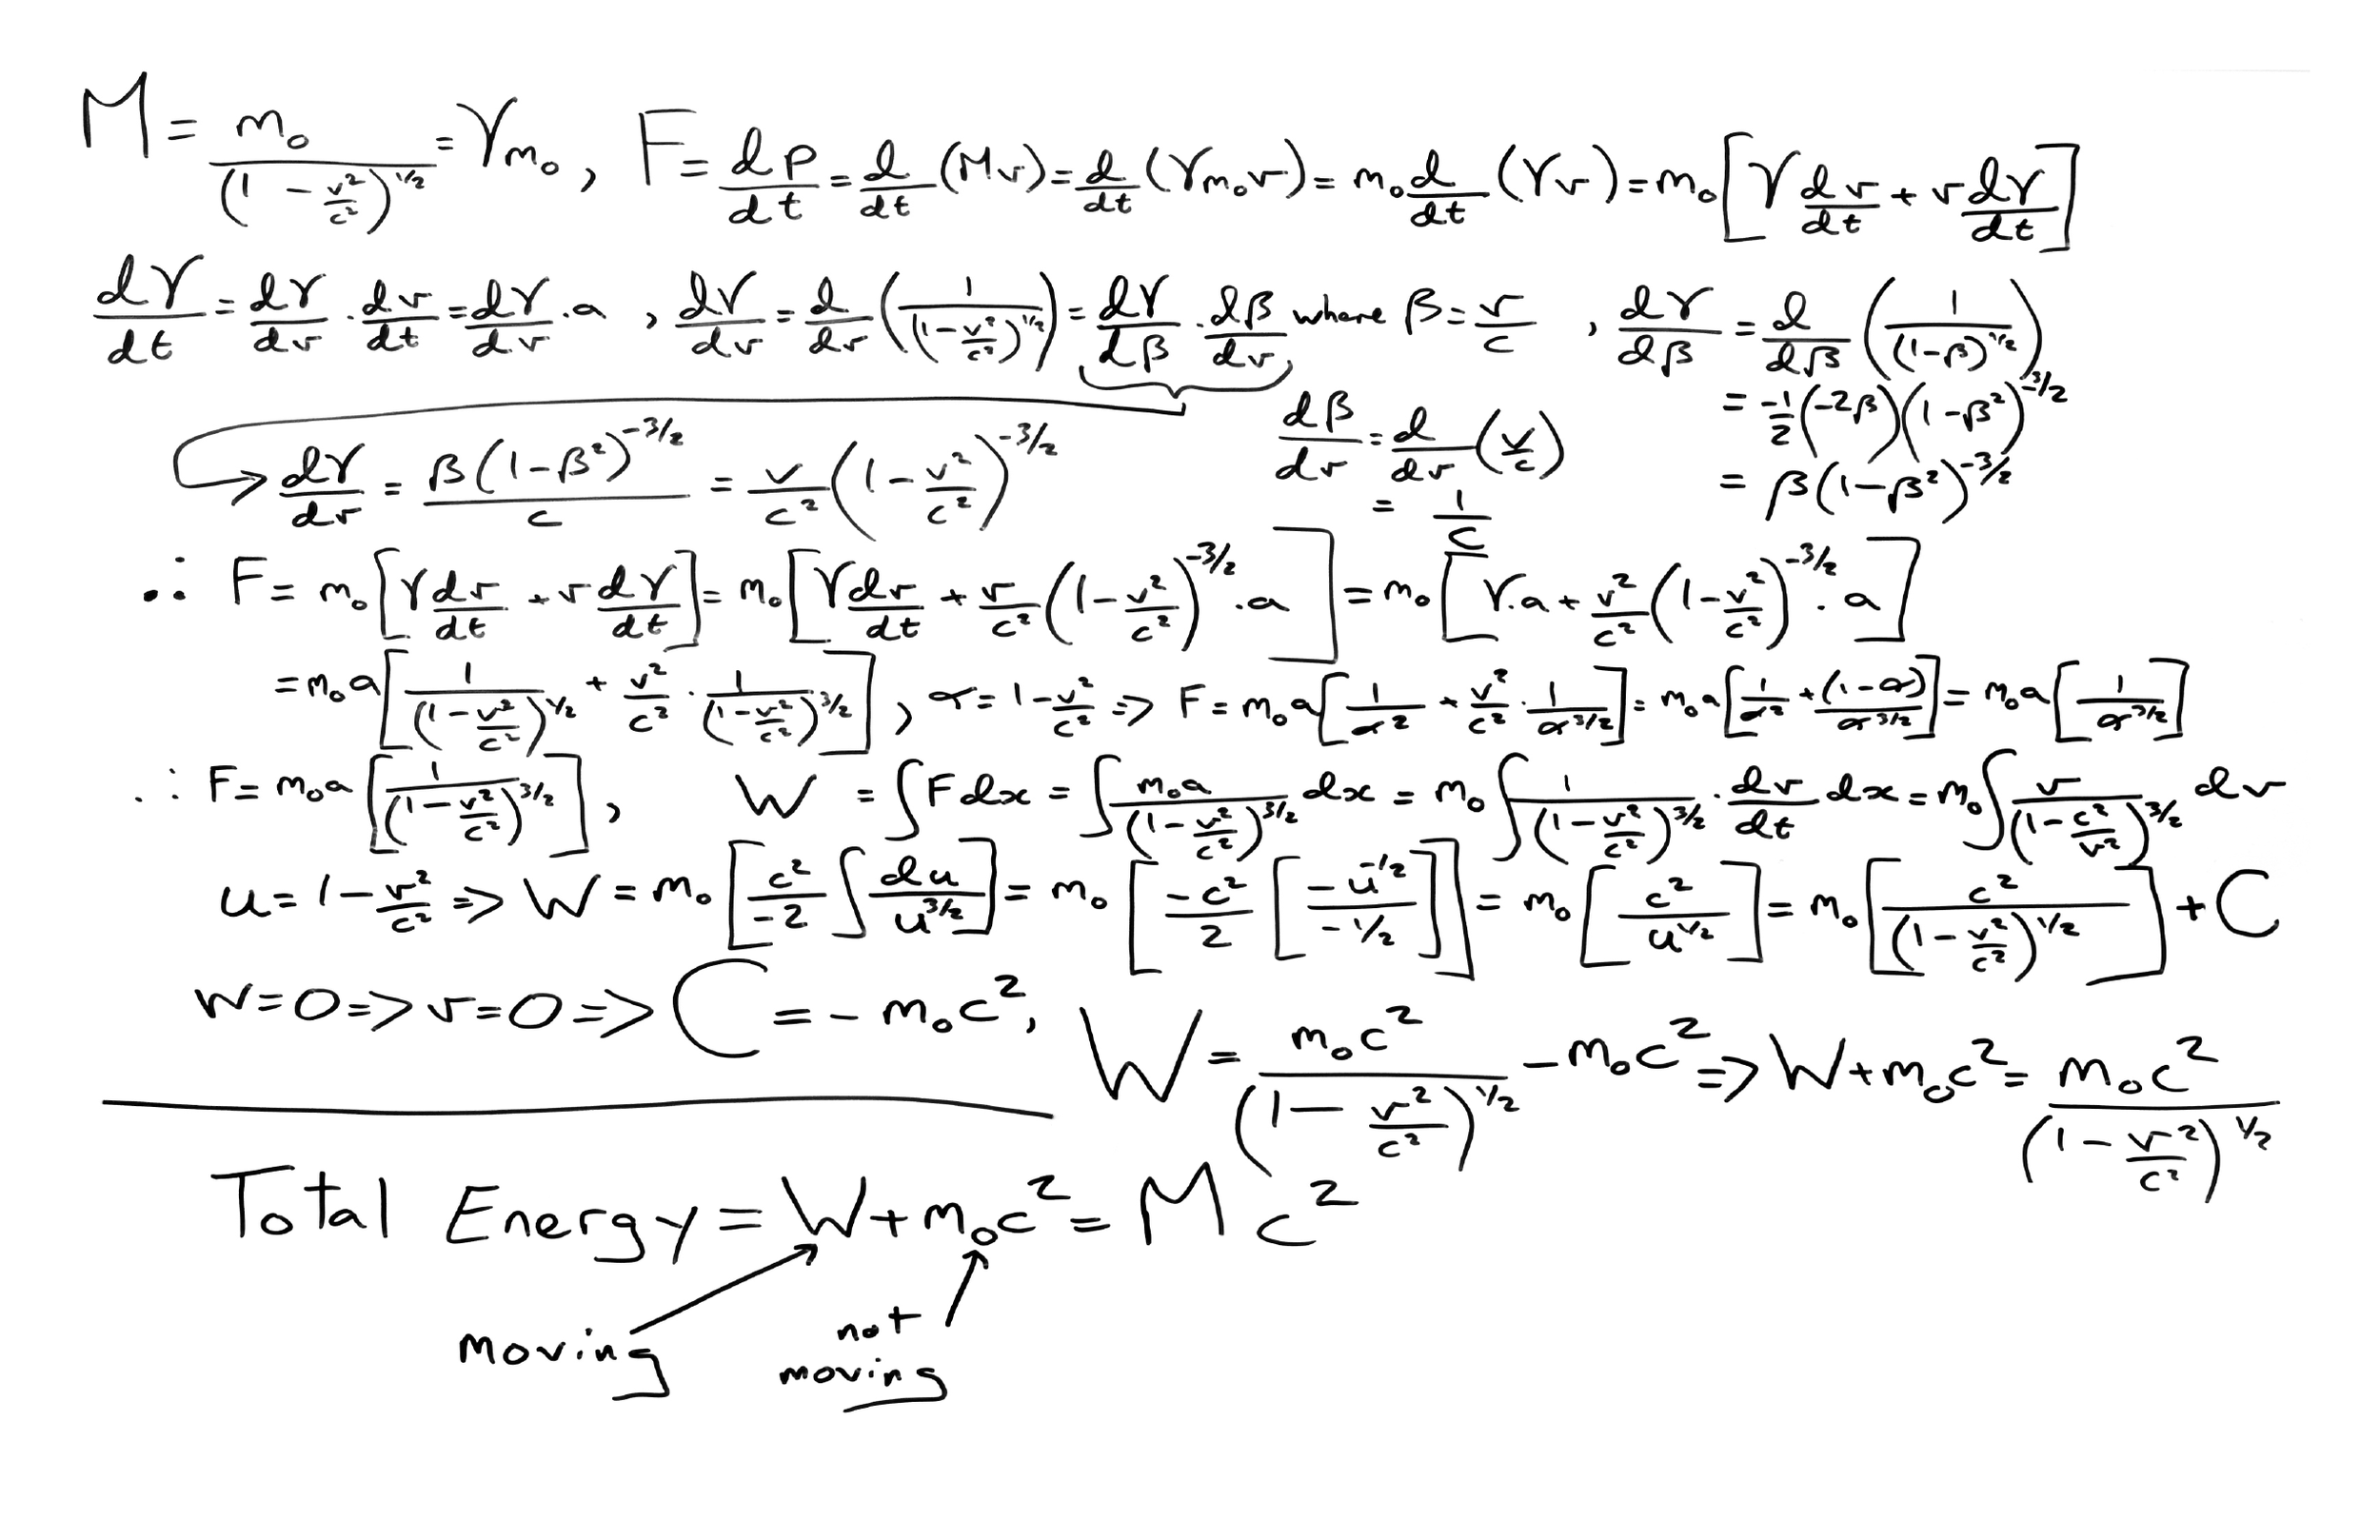 M = m₀/(1 - v²/c²)^1/2 = γm₀ , F = dp/dt = d/dt (Mv) = d/dt (γm₀v) = m₀ d/dt (γv) = m₀[γ dv/dt + v dγ/dt]
dγ/dt = dγ/dv · dv/dt = dγ/dv · a , dγ/dv = d/dv (1/(1 - v²/c²)^1/2) = dγ/dβ · dβ/dv where β = v/c , dγ/dβ = d/dβ (1/(1-β)^1/2)
= -1/2 (-2β)(1-β²)^-3/2
dβ/dv = d/dv (v/c)
= β(1-β²)^-3/2
= 1/c
→ dγ/dv = β(1-β²)^-3/2 / c = v/c² (1 - v²/c²)^-3/2
∴ F = m₀[γ dv/dt + v dγ/dt] = m₀[γ dv/dt + v/c² (1 - v²/c²)^-3/2 · a] = m₀[γ·a + v²/c² (1 - v²/c²)^-3/2 · a]
= m₀a[1/(1 - v²/c²)^1/2 + v²/c² · 1/(1 - v²/c²)^3/2] , α = 1 - v²/c² => F = m₀a[1/α² + v²/c² · 1/α^3/2] = m₀a[1/α² + (1-α)/α^3/2] = m₀a[1/α^3/2]
∴ F = m₀a[1/(1 - v²/c²)^3/2] , W = ∫F dx = ∫ m₀a/(1 - v²/c²)^3/2 dx = m₀ ∫ 1/(1 - v²/c²)^3/2 · dv/dt dx = m₀ ∫ v/(1 - c²/v²)^3/2 dv
u = 1 - v²/c² => W = m₀[c²/-2 ∫ du/u^3/2] = m₀[-c²/2 [-u^-1/2 / -1/2]] = m₀[c²/u^1/2] = m₀[c²/(1 - v²/c²)^1/2] + C
W = 0 => v = 0 => C = - m₀c² , W = m₀c²/(1 - v²/c²)^1/2 - m₀c² => W + m₀c² = m₀c²/(1 - v²/c²)^1/2
Total Energy = W + m₀c² = Mc²
moving
not
moving